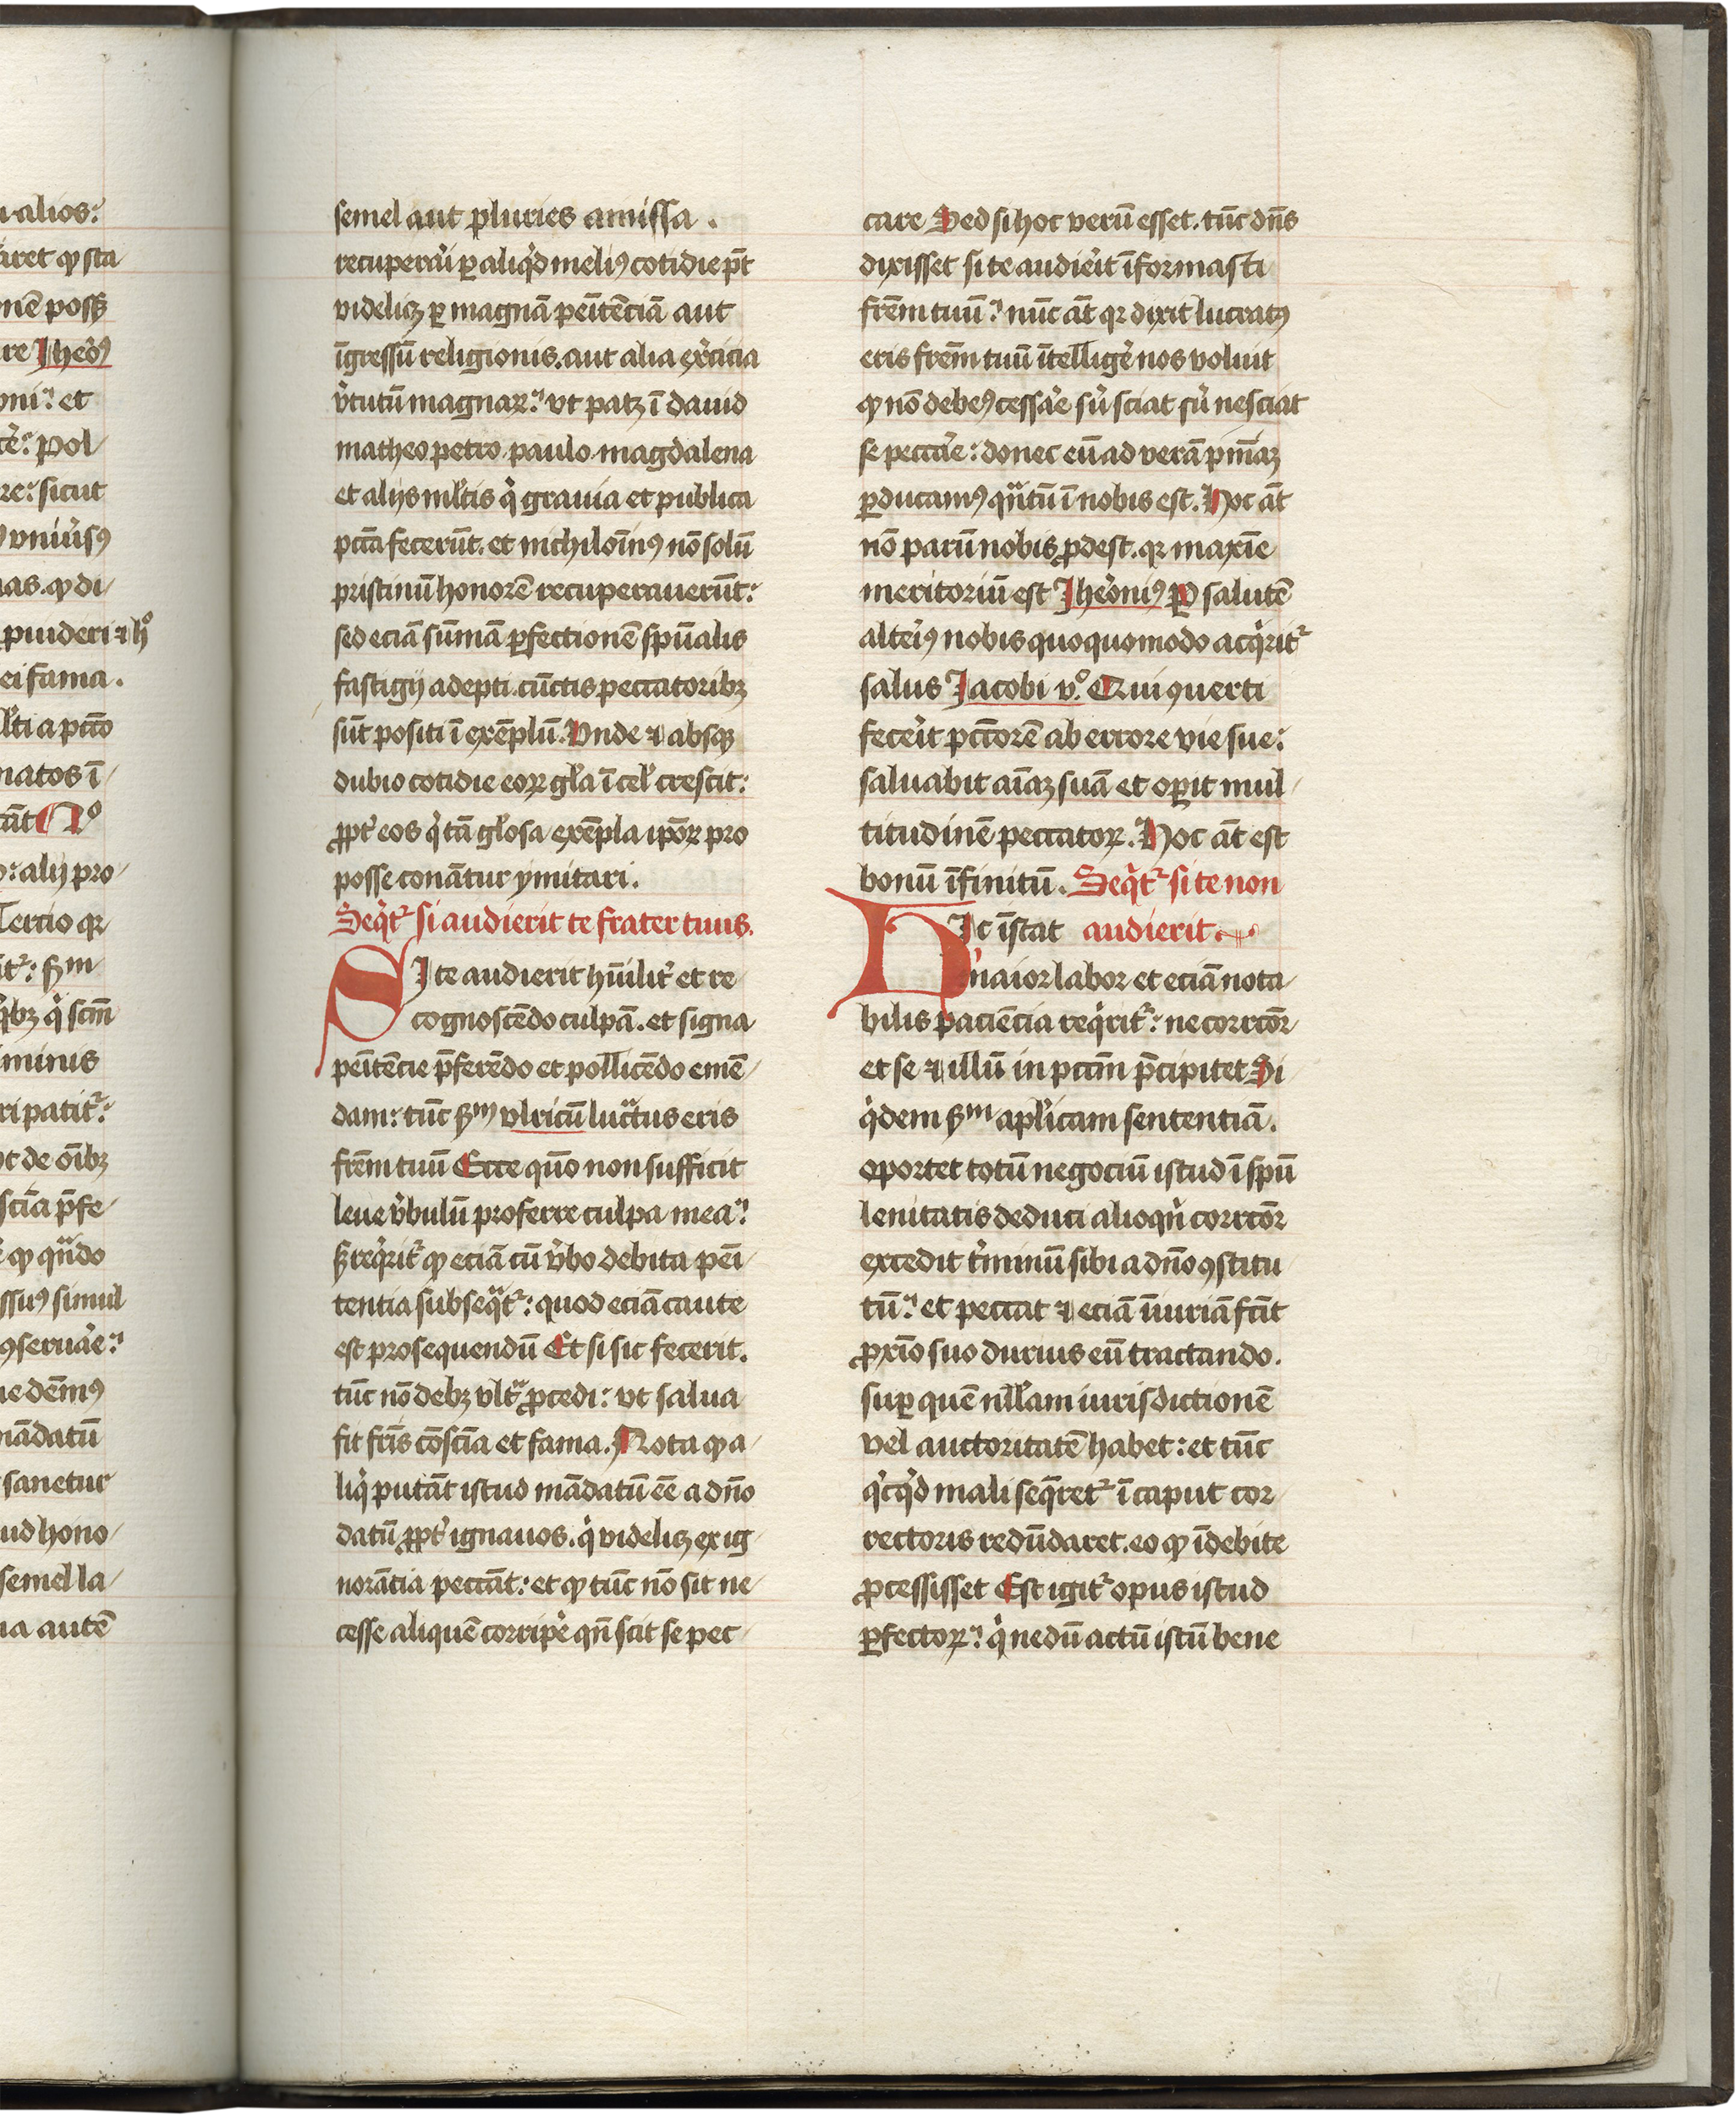 u alios:
aret ꝙ sta
nē posß
re Jheo᷒ꝰ
oni. et
cē: pol/
re: sicut
vniu̓sꝰ
as. ꝙ di/
puideri ⁊ h°
ei fama.
lti a pctō
natos ī/
cāt
o: alij pro/
Tertio qꝛ
it᷑: ẜm
qͥbꝫ qͥ scm̄
minus
ri patit᷑:
t de oībꝫ
sciā p̄fe/
ꝙ qn̄do
ssuꝰ simul
ꝯseruar̓e:
ue demꝰ
nādatū
sanetur
ud hono/
semel la/
ia autē
semel aut pluries amissa.
recuperar̓i ꝑ aliqͥd meliꝰ cotidie pt̄
videlicꝫ ꝑ magnā penītēciā aut
īgressū religionis. aut alia exer̓cicia
v̓tutū magnaꝝ: vt patꝫ ī dauid
matheo petro paulo magdalena
et alijs ml̓tis qͥ grauia et publica
pctā̄ fecerūt. et nichilomīꝰ nō solū
pristinū honorē recuperauerūt:
sed eciā sūmā ꝑfectionē spūalis
fastigij adepti. cūctis peccatoribꝫ
sūt positi ī exēplū. Vnde ⁊ absqꝫ
dubio cotidie eoꝝ gl̓a ī cel̓ crescit:
ꝓpt̓ eos qͥ tā gl̓osa exēpla ip̄oꝝ pro
posse conātur ymitari.
Seqͥt᷑ si audierit te frater tuus.
SJ te audierit hūilit̓ et re
cognoscēdo culpā. et signa
penītēcie p̄ferēdo et pollicēdo emē/
dam: tūc ẜm vlricū lucͣtus eris
frēm tuū Ecce quō non sufficit
leue v̓bulū proferre culpa mea:
ẜ reqͥrit᷑ ꝙ eciā cū v̓bo debita penī/
tentia subseqͣt᷑: quod eciā caute
est prosequendū Et si sic fecerit.
tūc nō debꝫ vltͣ ꝓcedi: vt salua
fit fr̄is cōsciā et fama. Nota ꝙ a/
liqͥ putāt istud mādatū eē a dn̄o
datū ꝓpt̓ ignauos. qͥ videlicꝫ ex ig/
norātia peccāt: et ꝙ tūc nō sit ne/
cesse aliquē corriper̓e qn̄ scit se pec/
care Sed si hoc verū esset. tūc dn̄s
dixisset si te audier̓it īformasti
frēm tuū: nūc āt qꝛ dixit lucratꝰ
eris frēm tuū ītelliger̓e nos voluit
ꝙ nō debeꝰ cessar̓e siu̓ sciat siu̓ nesciat
se peccar̓e: donec eū ad verā pnīaꝫ
ꝑducamꝰ qͣntū ī nobis est. Hoc āt
nō parū nobis ꝓdest. qꝛ maxīe
meritoriū est Jheronīꝰ Per salutē
alteriꝰ nobis quoquomodo acqͥrit᷑
salus Jacobi v°. Qui ꝯuerti
fecer̓it pctōrē ab errore vie sue:
saluabit aīaꝫ suā et operit mul/
titudinē peccatoꝝ. Hoc āt est
bonū īfinitū. Seqͥt᷑ si te non
HIc īstat audierit.
maior labor et eciā nota/
bilis paciēcia reqͥrit᷑: ne corrctōr/
et se ⁊ illū in pctm̄ p̄cipitet Si
qͥdem ẜm apl̓icam sententiā.
oportet totū negociū istud ī spū
lenitatis deduci alioqͥn corrctōr
excedit t̓minū sibi a dn̄o ꝯstitu/
tū: et peccat ⁊ eciā īiuriā fcīt
ꝓxīo suo durius eū tractando.
suꝑ quē nll̓am iurisdictionē
vel auctoritatē habet: et tūc
qͥcqͥd mali seq̄ret᷑ ī caput cor/
rectoris redūdaret. eo ꝙ īdebite
ꝓcessisset Est igit᷑ opus istud
ꝑfectoꝝ: qͥ nedū actū istū bene